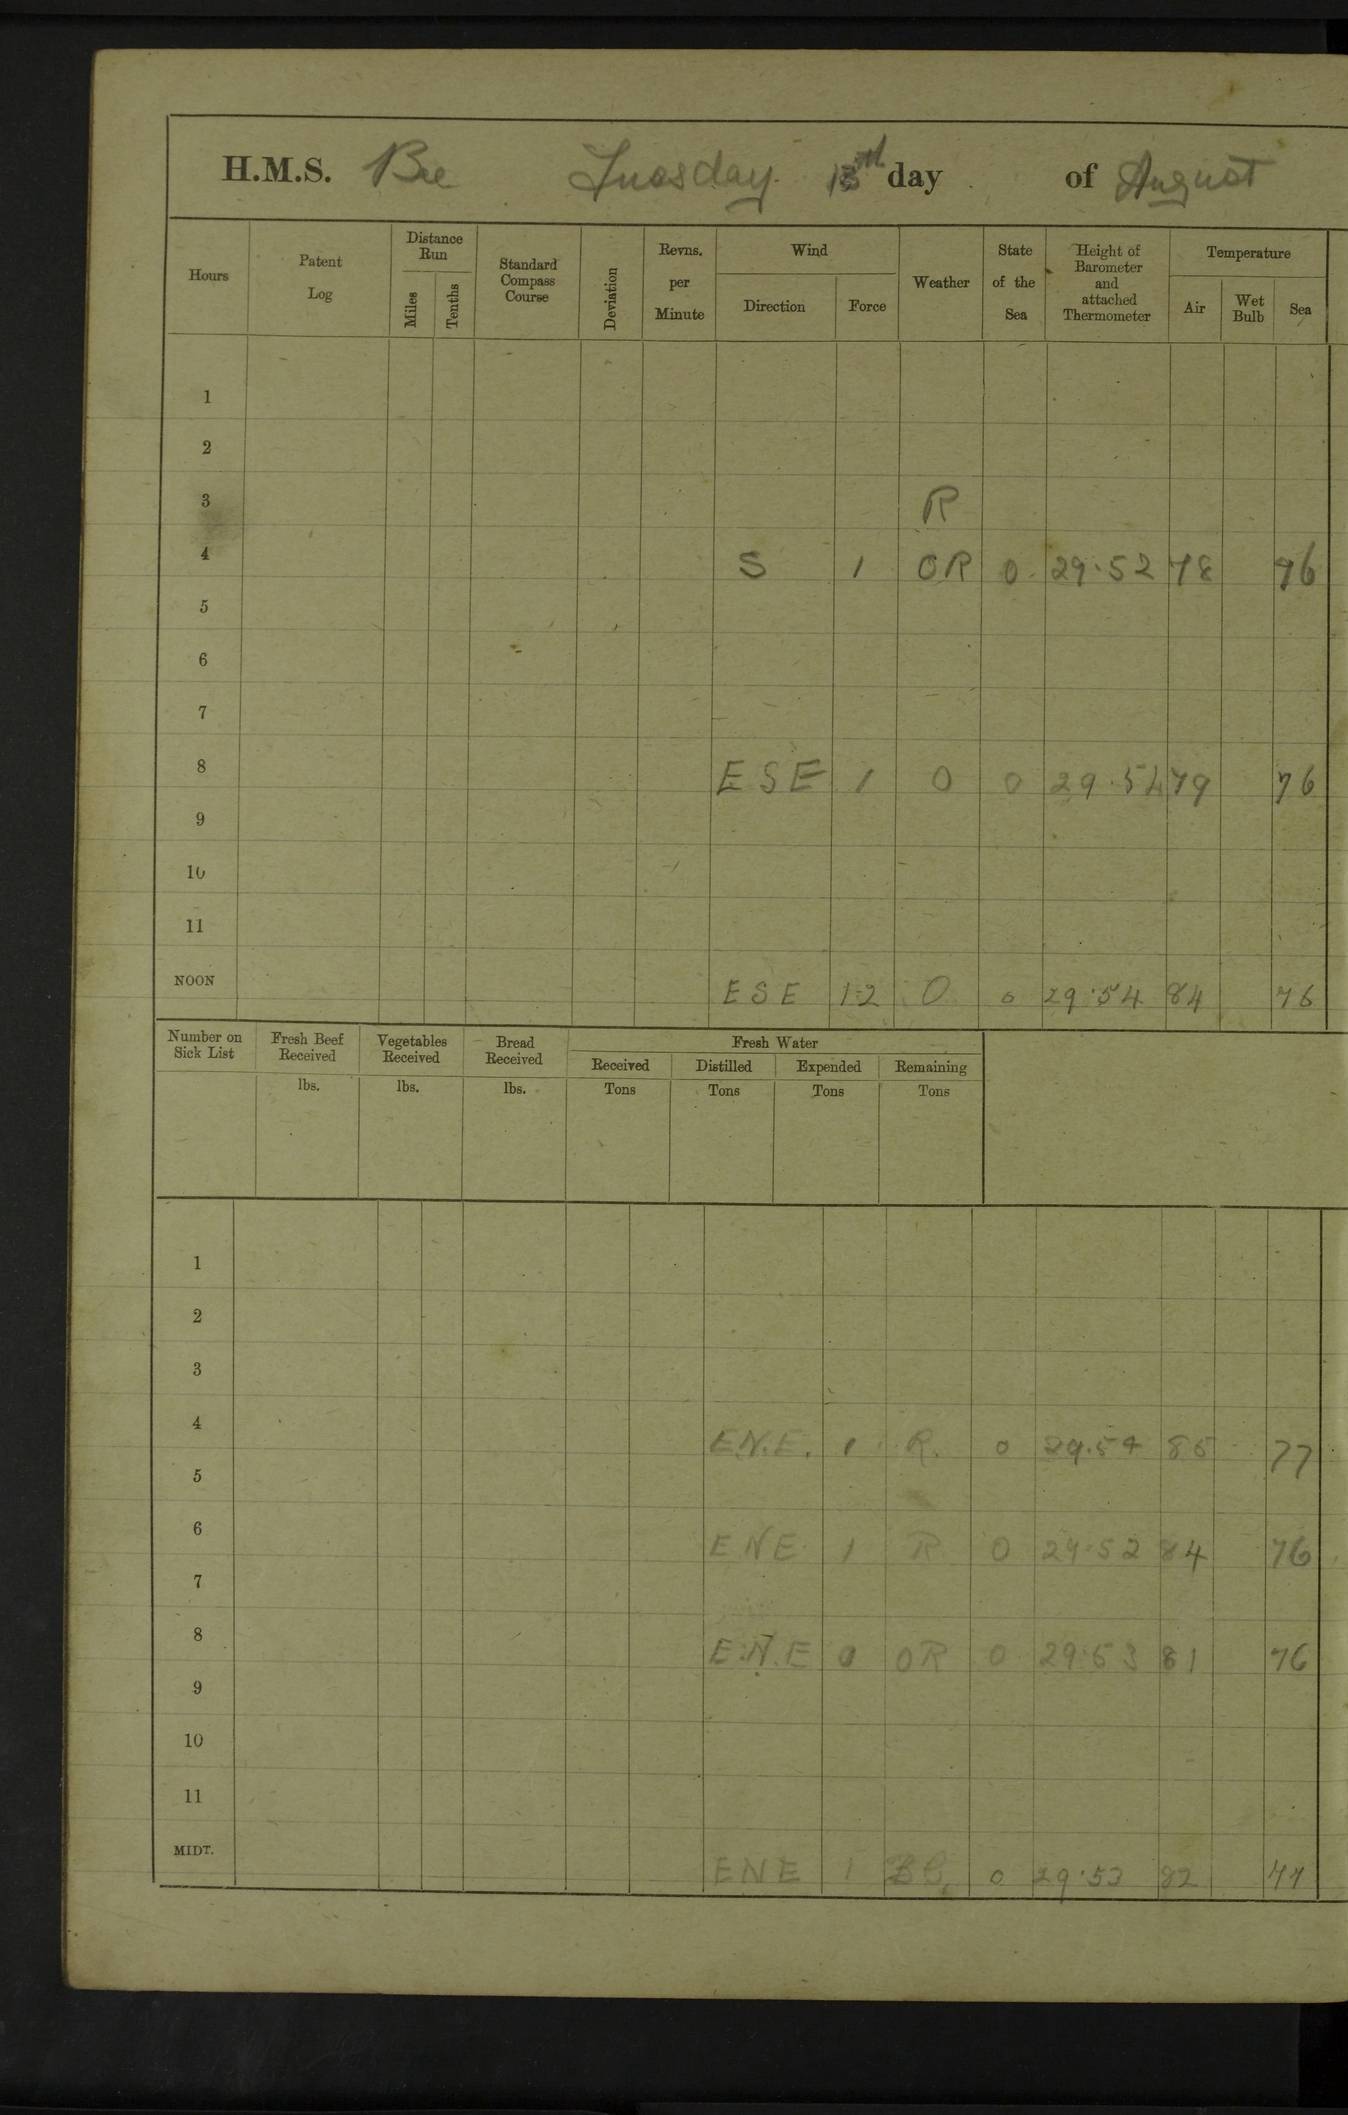 H.M.S. Bee Tuesday 13th day of August
Hours Patent Log Distance Run Miles Tenths Standard Compass Course Deviation Revns. per Minute Wind Direction Force Weather State of the Sea Height of Barometer and attached Thermometer Temperature Air Wet Bulb Sea
1
2
3 R
4 S 1 OR 0 29.52 78 76
5
6
7
8 ESE 1 O 0 29.54 79 76
9
10
11
NOON ESE 1-2 O 0 29.54 84 76
Number on Sick List Fresh Beef Received lbs. Vegetables Received lbs. Bread Received lbs. Fresh Water Received Tons Distilled Tons Expended Tons Remaining Tons
1
2
3
4 E.N.E. 1 R. 0 29.54 85 77
5
6 ENE 1 R 0 29.52 84 76
7
8 E.N.E 0 OR 0 29.53 81 76
9
10
11
MIDT. ENE 1 BC 0 29.53 82 77